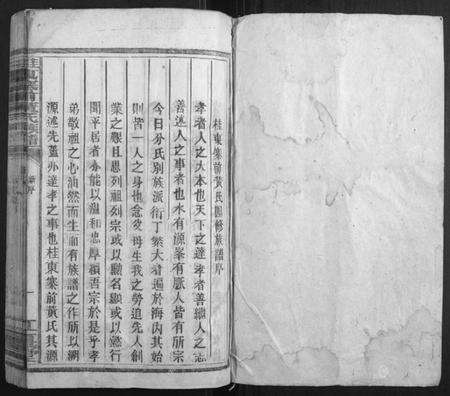 桂東寨前黃氏四修族譜序
孝者人之大本也天下之達孝者善繼人之志
善述人之事者也木有源峯有脈人皆有所宗
今日分氏別族派衍丁繁大者遍於海內其始
則皆一人之身也念父母生我之勞追先人創
業之艱且思列祖列宗或以勳名顯或以懿行
聞平居者亦能以溫和忠厚願吾宗於是乎孝
弟敬祖之心油然而生爾有族譜之作所以溯
源述先蓋亦達孝之事也桂東寨前黃氏其源
序